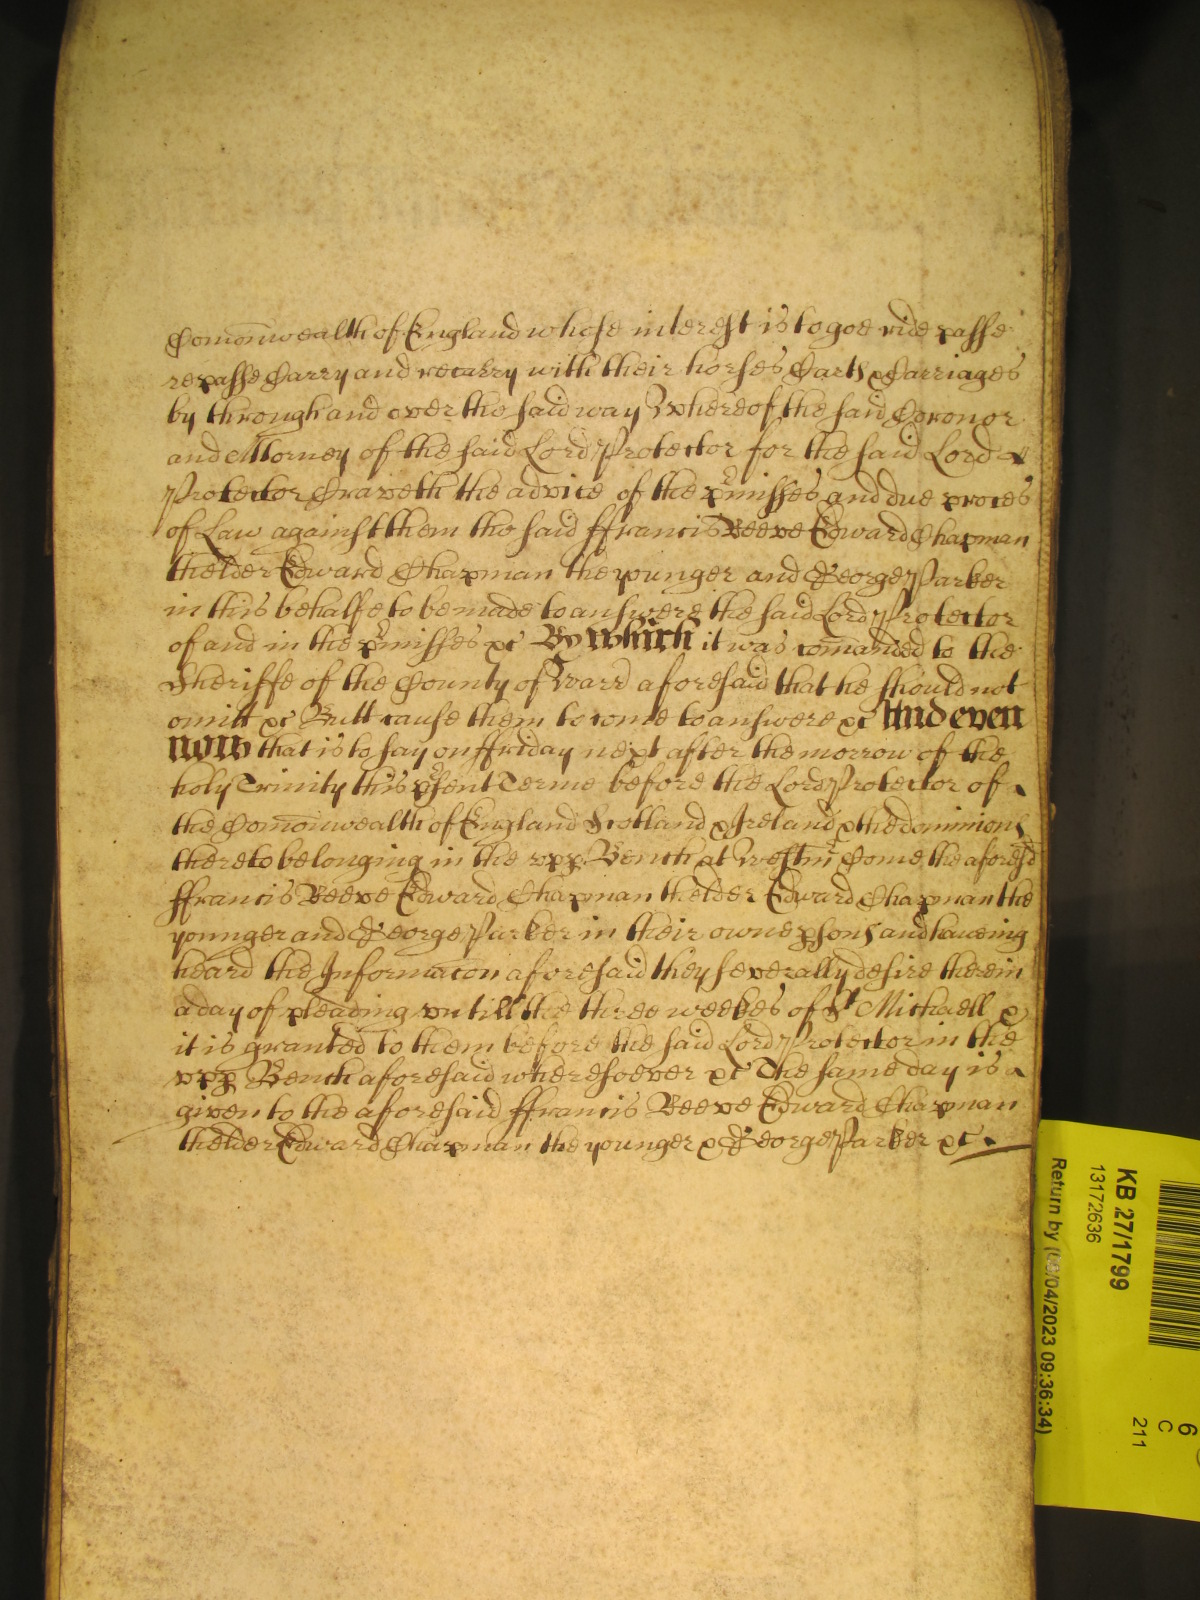 Comonwealth of England whose interest is to goe ride passe
repasse Carry and recarry with their horses Carts & Carriages
by through and over the said way Whereof the said Coronor
and Attorney of the said Lord Protector for the said Lord
Protector Craveth the advice of the pmisses and due proces
of Law against them the said ffrancis Reeve Edward Chapman
thelder Edward Chapman the younger and George Parker
in this behalfe to be made to answere the said Lord Protector
of and in the pmisses &c By which it was comanded to the
Sheriffe of the County of Warr aforesaid that he should not
omitt &c Butt cause them to come to answere &c And even
now that is to say on ffriday next after the morrow of the
holy Trinity this psent Terme before the Lord Protector of
the Comonwealth of England Scotland & Ireland & the dominions
thereto belonging in the upp Bench at Westmr Come the aforesd
ffrancis Reeve Edward Chapman thelder Edward Chapman the
younger and George Parker in their owne psons and haveing
heard the Informacon aforesaid they severally desire therein
a day of pleading untill the three weekes of St Michaell &
it is granted to them before the said Lord Protector in the
upp Bench aforesaid wheresoever &c The same day is
given to the aforesaid ffrancis Reeve Edward Chapman
thelder Edward Chapman the younger & George Parker &c.
KB 27/1799
13172636
Return by (/04/2023 09:36:34)
6
C
211